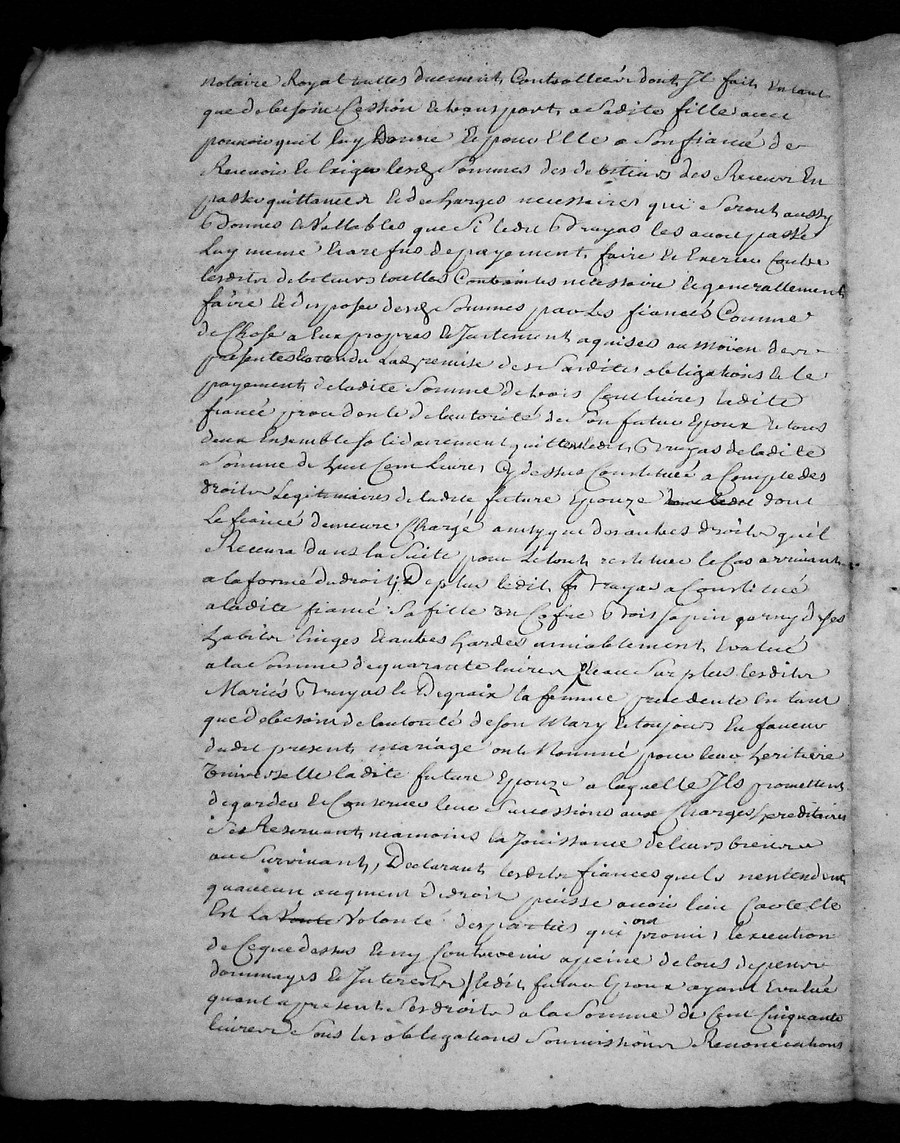 notaire Royal touttes duement Controllées dont Il fait En tant
que de besoin Cession Et transport a Sadite fille avec
pouvoir quil luy Donne Et pour Elle a Son fiancé de
Recevoir Et Exiger lesd Sommes des debiteurs des Recevoir En
passer quittances Et decharges necessaires qui Seront aussy
Bonnes Et Vallables que Si ledit Bruyas les avoit passé
Luy meme Et a refus de payement faire Et Exercer Contre
lesdits debiteurs touttes Contraintes necessaire Et generallement
faire Et disposer desd Sommes par Les fiancés Comme
de Chose a Eux propres Et Justement aquises au Moïen des
presentes Et la Remise des Susdites obligations Et le
payement de ladite Somme de trois Cent livres ladite
fiancée procedente de lautorité de Son futur Epoux Et tous
deux Ensemble Solidairement quittent ledit Bruyas de ladite
Somme de huit Cent Livres Cy dessus Constituée a Compte des
droits Legitimaires de ladite future Epouze dont
Le fiancé demeure Chargé ainsy que des autres droits quil
Recevra dans la Suite pour Le tout restituer le Cas arrivant
a la forme du droit, De plus ledit Bruyas a Constitué
a ladite fiancée Sa fille un Cofre Bois Sapin garny de Ses
habits linges Et autres hardes amiablement Evalué
a la Somme de quarante livres Et au Surplus lesdits
Mariés Bruyas Et Degraix la femme procedente En tant
que de besoin de lautorité de Son Mary Et toujours En faveur
dudit present mariage ont Nommé pour leur heritiere
Universelle ladite future Epouze a laquelle Ils promettent
de garder Et Conserver leur Successions aux Charges hereditaires
Se Reservant neamoins la Jouissance de leurs biens
au Survivant, Declarant lesdits fiancés quils nentendent
quaucun augment de droit puisse avoir lieu Car telle
Est La Volonté des parties qui ont promis lexecution
de Ce que dessus Et ny Contrevenir a peine de tous depens
dommages Et Interets / ledit futur Epoux ayant Evalué
quant a present Ses droits a la Somme de Cent Cinquante
livres Sous les obligations Soumissions Renonciations